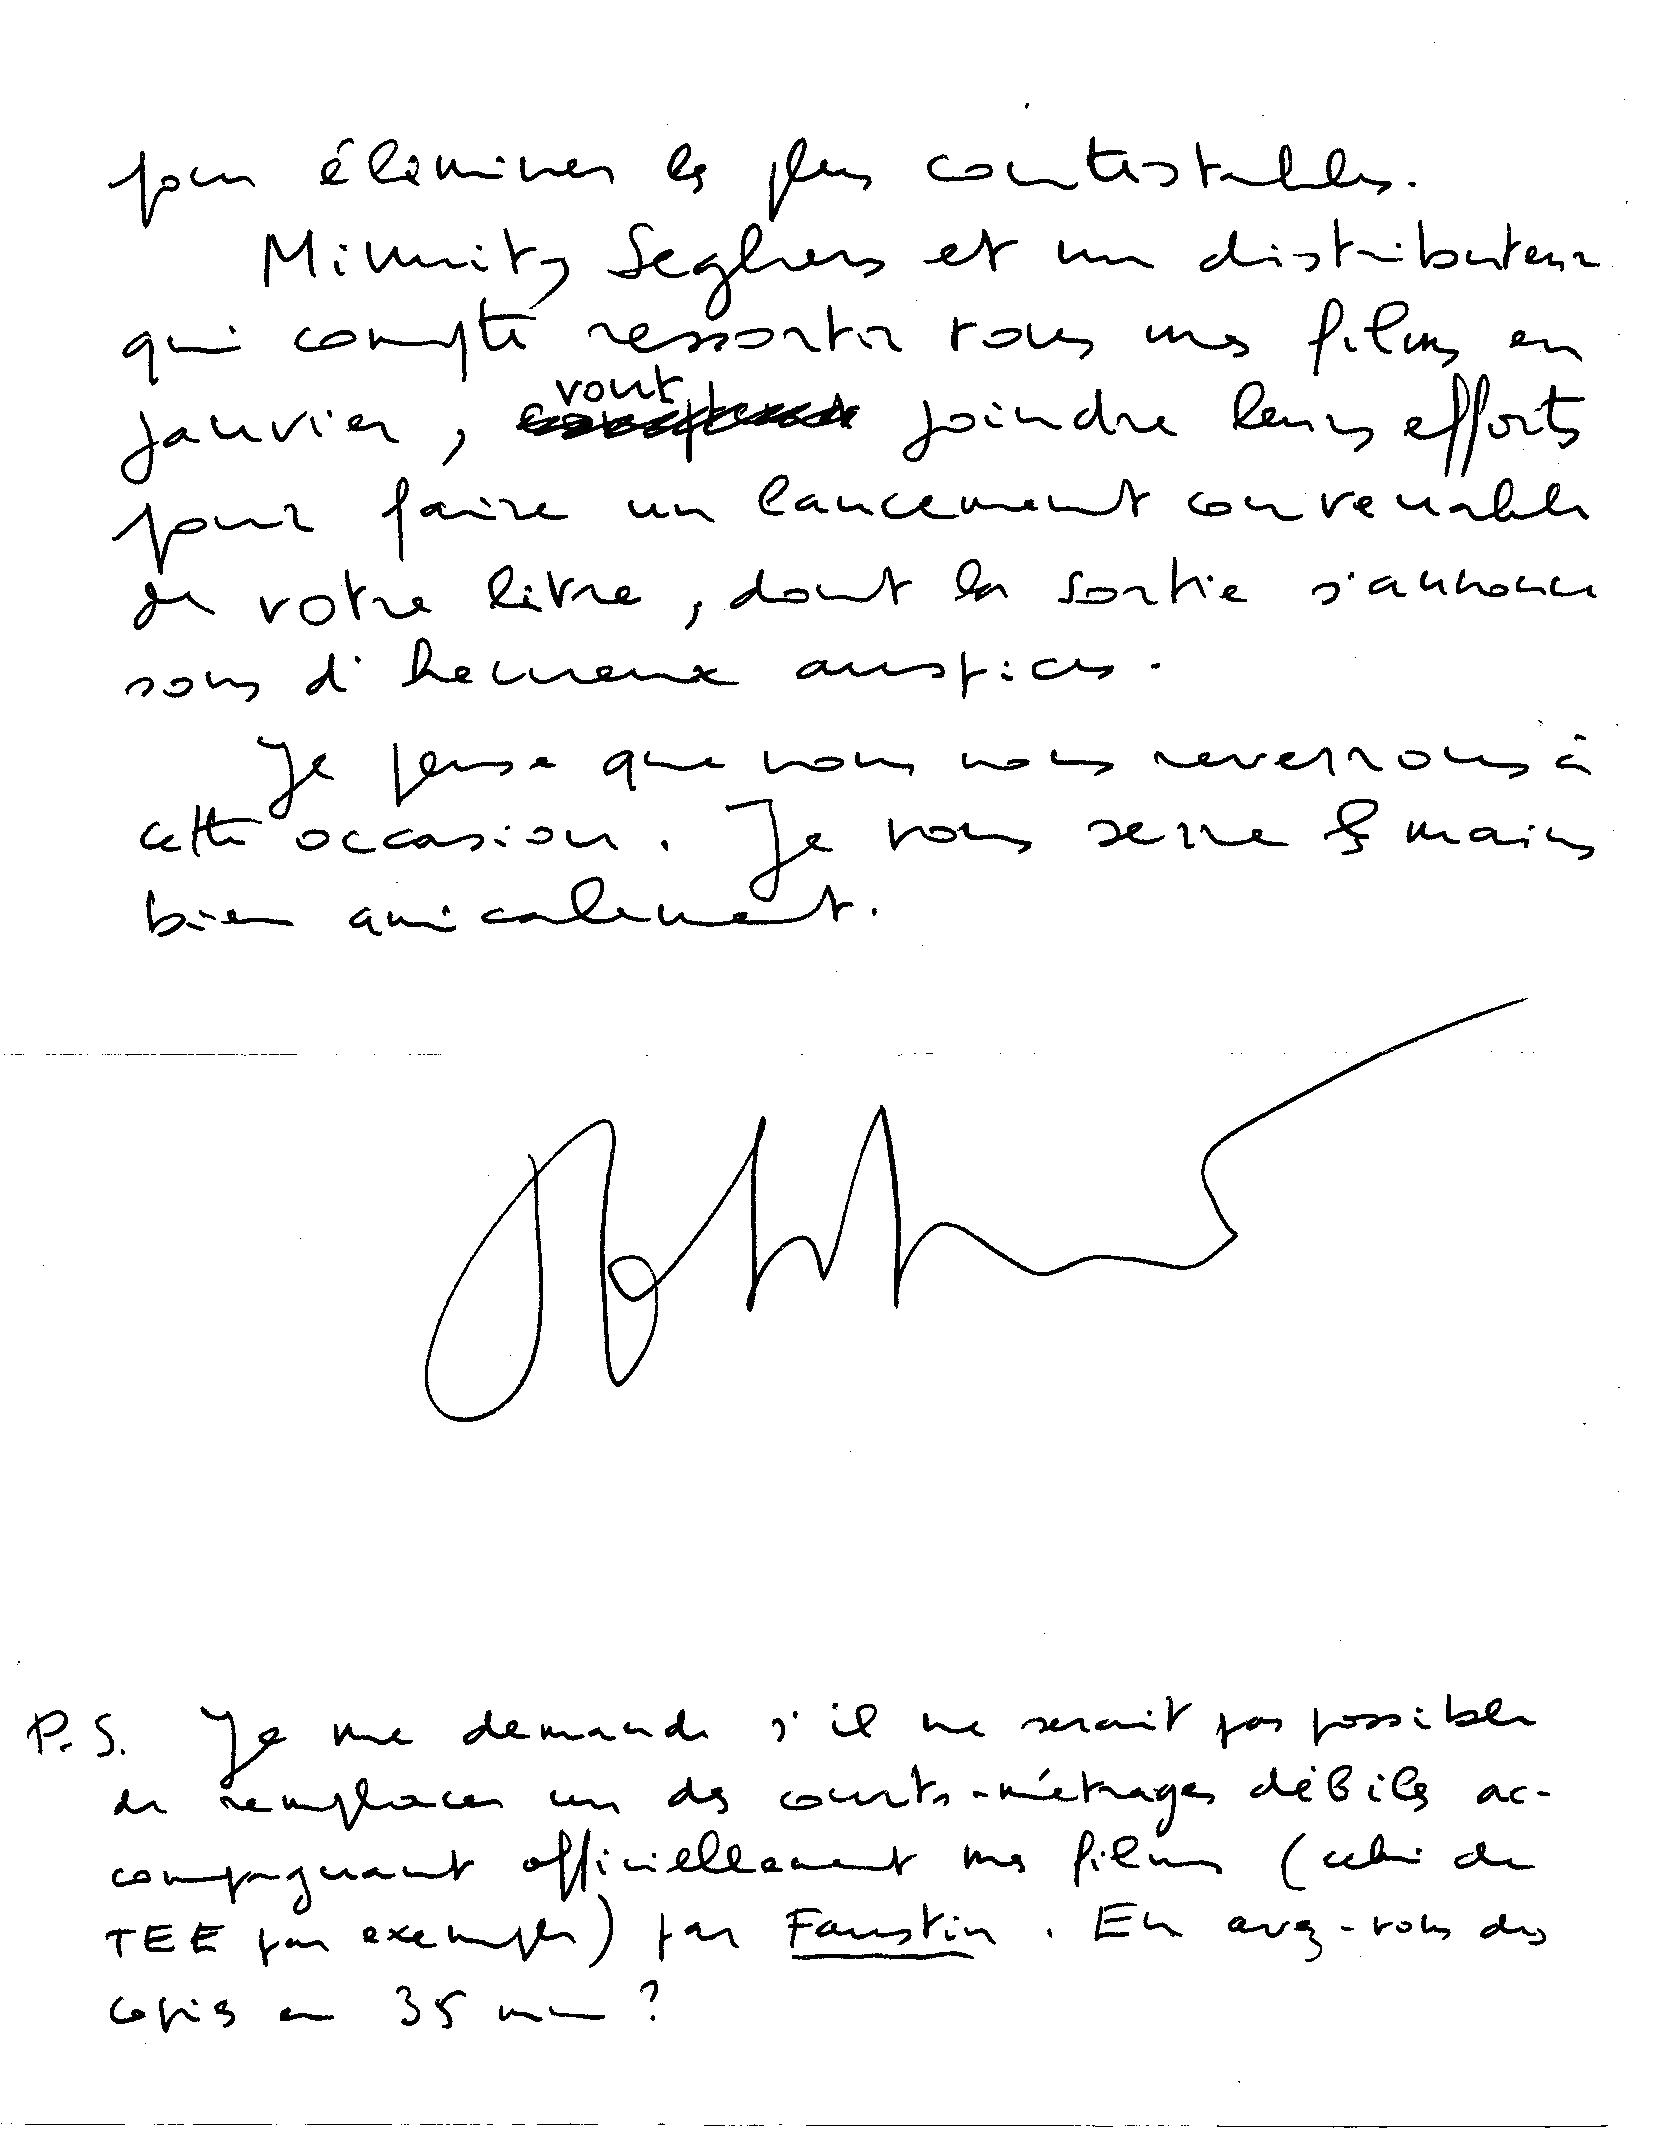 pour éliminer les plus contestables.
Minnitz, Seghers et un distributeur
qui compte ressortir tous mes films en
janvier, vont joindre leurs efforts
pour faire un lancement convenable
de votre livre, dont la sortie s'annonce
sous d'heureux auspices.
Je pense que nous nous reverrons à
cette occasion. Je vous serre les mains
bien amicalement.
P.S. Je me demande s'il ne serait pas possible
de remplacer un des courts-métrages débiles ac-
compagnant officiellement mes films (celui de
TEE par exemple) par Faustin. En avez-vous des
copies en 35 mm ?